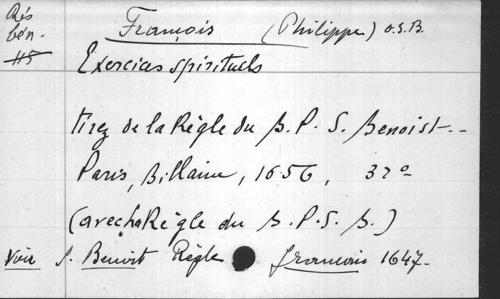 Rés
bén.
115
François (Philippe) O.S.B.
Exercices spirituels
tirez de la Règle du B.P.S. Benoist--
Paris, Billaine, 1656, 32°
(avec la Règle du B.P.S.B.)
Voir S. Benoit Règle François 1647.